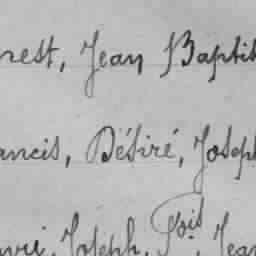 nest, Jean Baptis
ancis, Désiré, Joseph
Joseph, Jean